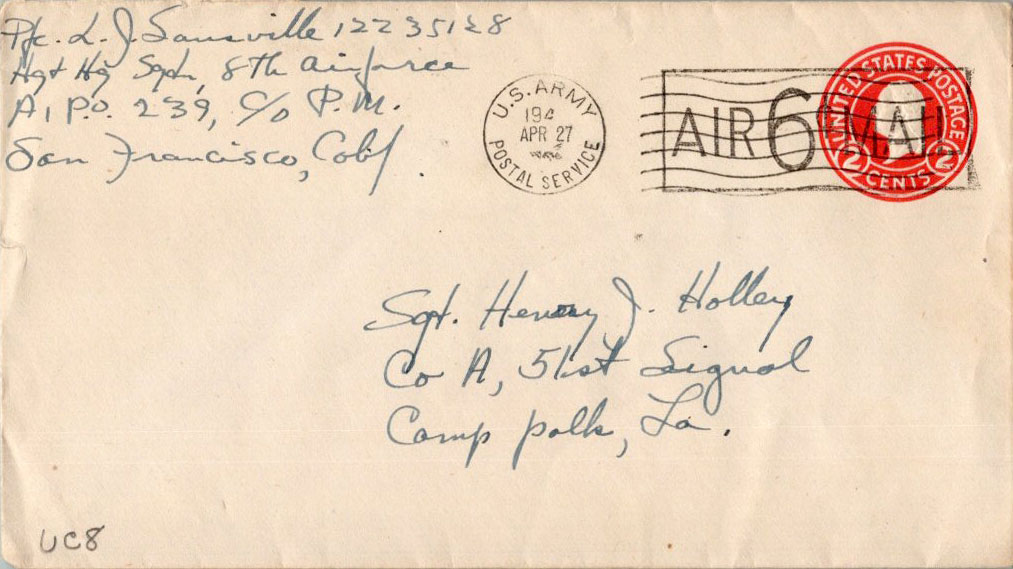 Pfc. L. J. Sansville 12235128
Hqt Hq Sqdn, 8th Airforce
A.P.O. 239, C/o P.M.
San Francisco, Calif
U.S. ARMY
194
APR 27
POSTAL SERVICE
AIR 6¢ MAIL
UNITED STATES POSTAGE
2 CENTS 2
Sgt. Henry J. Holley
Co A, 51st Signal
Camp Polk, La.
UC8